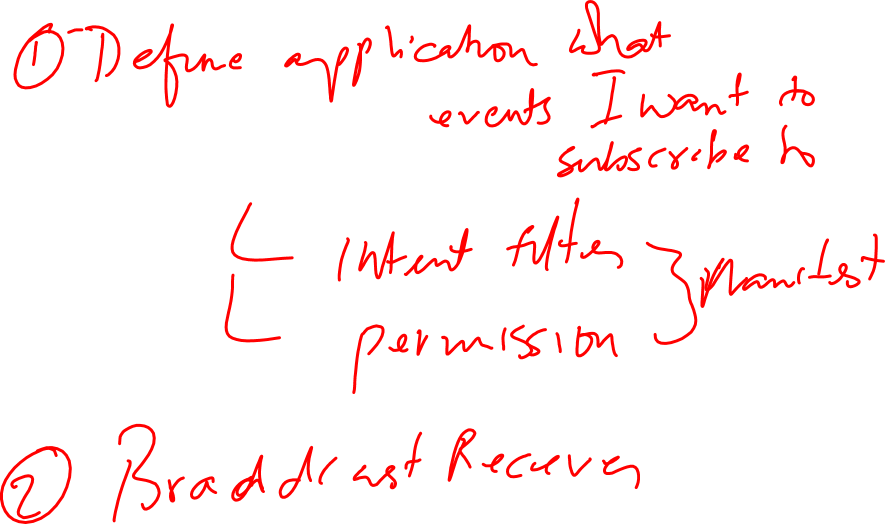 ① Define application what
events I want to
subscribe to
Intent filter } Manifest
permission
② Broadcast Receiver